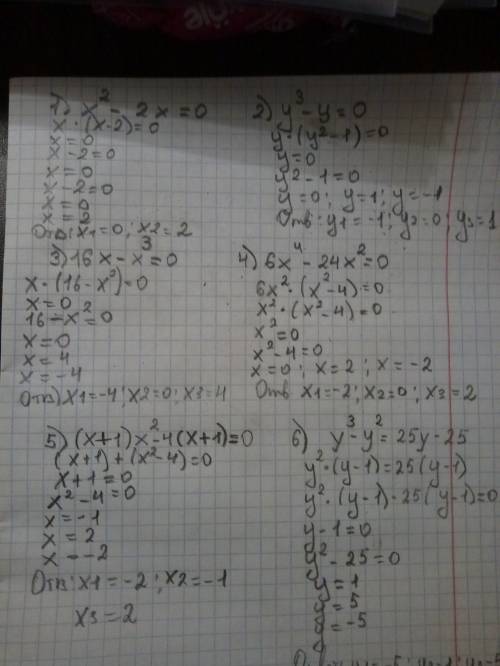 1) x² - 2x = 0
x · (x-2) = 0
x = 0
x - 2 = 0
x = 0
x - 2 = 0
x = 0
x = 2
Отв: x1 = 0; x2 = 2
2) y³ - y = 0
y (y² - 1) = 0
y = 0
y² - 1 = 0
y = 0; y = 1; y = -1
Отв: y1 = -1; y2 = 0; y3 = 1
3) 16x - x³ = 0
x · (16 - x²) = 0
x = 0
16 - x² = 0
x = 0
x = 4
x = -4
Отв) x1 = -4; x2 = 0; x3 = 4
4) 6x⁴ - 24x² = 0
6x² · (x² - 4) = 0
x² · (x² - 4) = 0
x² = 0
x² - 4 = 0
x = 0; x = 2; x = -2
Отв x1 = -2; x2 = 0; x3 = 2
5) (x+1)x² - 4(x+1) = 0
(x+1) + (x² - 4) = 0
x + 1 = 0
x² - 4 = 0
x = -1
x = 2
x = -2
Отв: x1 = -2; x2 = -1
x3 = 2
6) y³ - y² = 25y - 25
y² · (y - 1) = 25(y - 1)
y² · (y - 1) - 25(y - 1) = 0
y - 1 = 0
y² - 25 = 0
y = 1
y = 5
y = -5